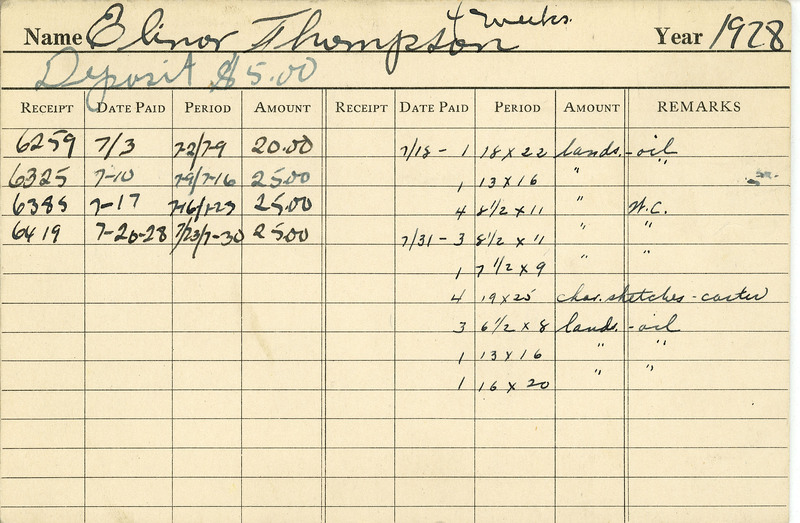 4 weeks.
Name Elinor Thompson Year 1928
Deposit $5.00
RECEIPT DATE PAID PERIOD AMOUNT RECEIPT DATE PAID PERIOD AMOUNT REMARKS
6259 7/3 7-2/7-9 20.00 7/18 - 1 18 x 22 lands. - oil
6325 7-10 7-9/7-16 25.00 1 13 x 16 " "
6385 7-17 25.00 4 8 1/2 x 11 " W.C.
6419 7-20-28 7/23/7-30 25.00 7/31 - 3 8 1/2 x 11 " "
1 7 1/2 x 9 " "
4 19 x 25 char. sketches -
3 6 1/2 x 8 lands. - oil
1 13 x 16 " "
1 16 x 20 " "